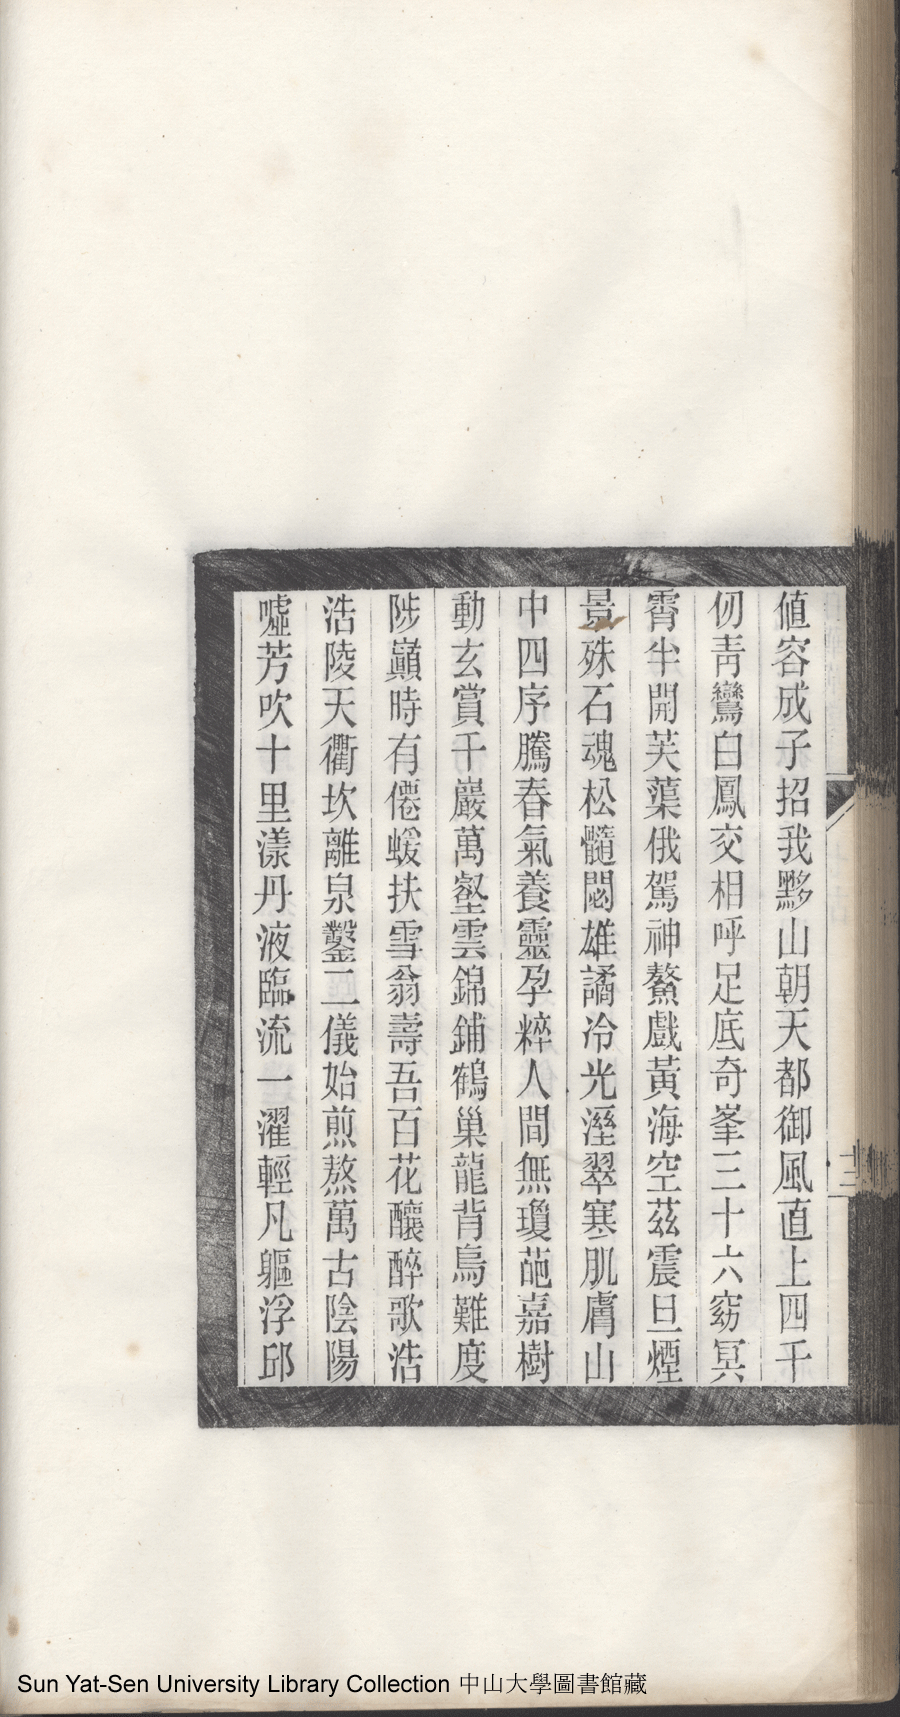 値容成子招我黟山朝天都御風直上四千
仞靑鸞白鳳交相呼足底奇峯三十六窈冥
霄半開芙蕖俄駕神鰲戲黃海空茲震旦煙
景殊石魂松髓閟雄譎冷光溼翠寒肌膚山
中四序騰春氣養靈孕粹人間無瓊葩嘉樹
動玄賞千巖萬壑雲錦鋪鶴巢龍背鳥難度
陟巔時有僊蝯扶雪翁壽吾百花釀醉歌浩
浩陵天衢坎離泉鑿二儀始煎熬萬古陰陽
噓芳吹十里漾丹液臨流一濯輕凡軀浮邱
Sun Yat-Sen University Library Collection 中山大學圖書館藏